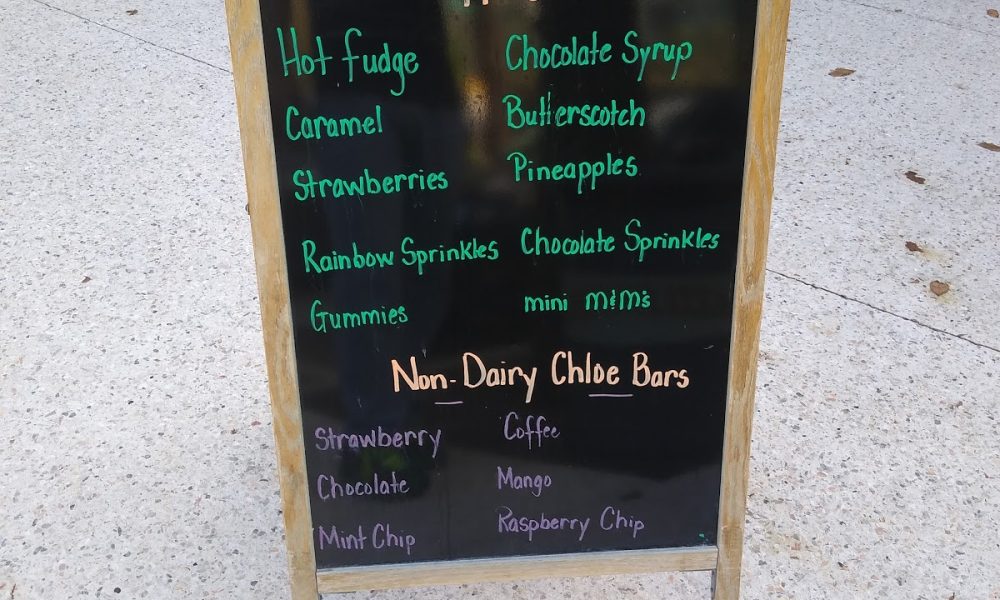 Hot fudge Chocolate Syrup
Caramel Butterscotch
Strawberries Pineapples
Rainbow Sprinkles Chocolate Sprinkles
Gummies mini m&m's
Non-Dairy Chloe Bars
Strawberry Coffee
Chocolate Mango
Mint Chip Raspberry Chip